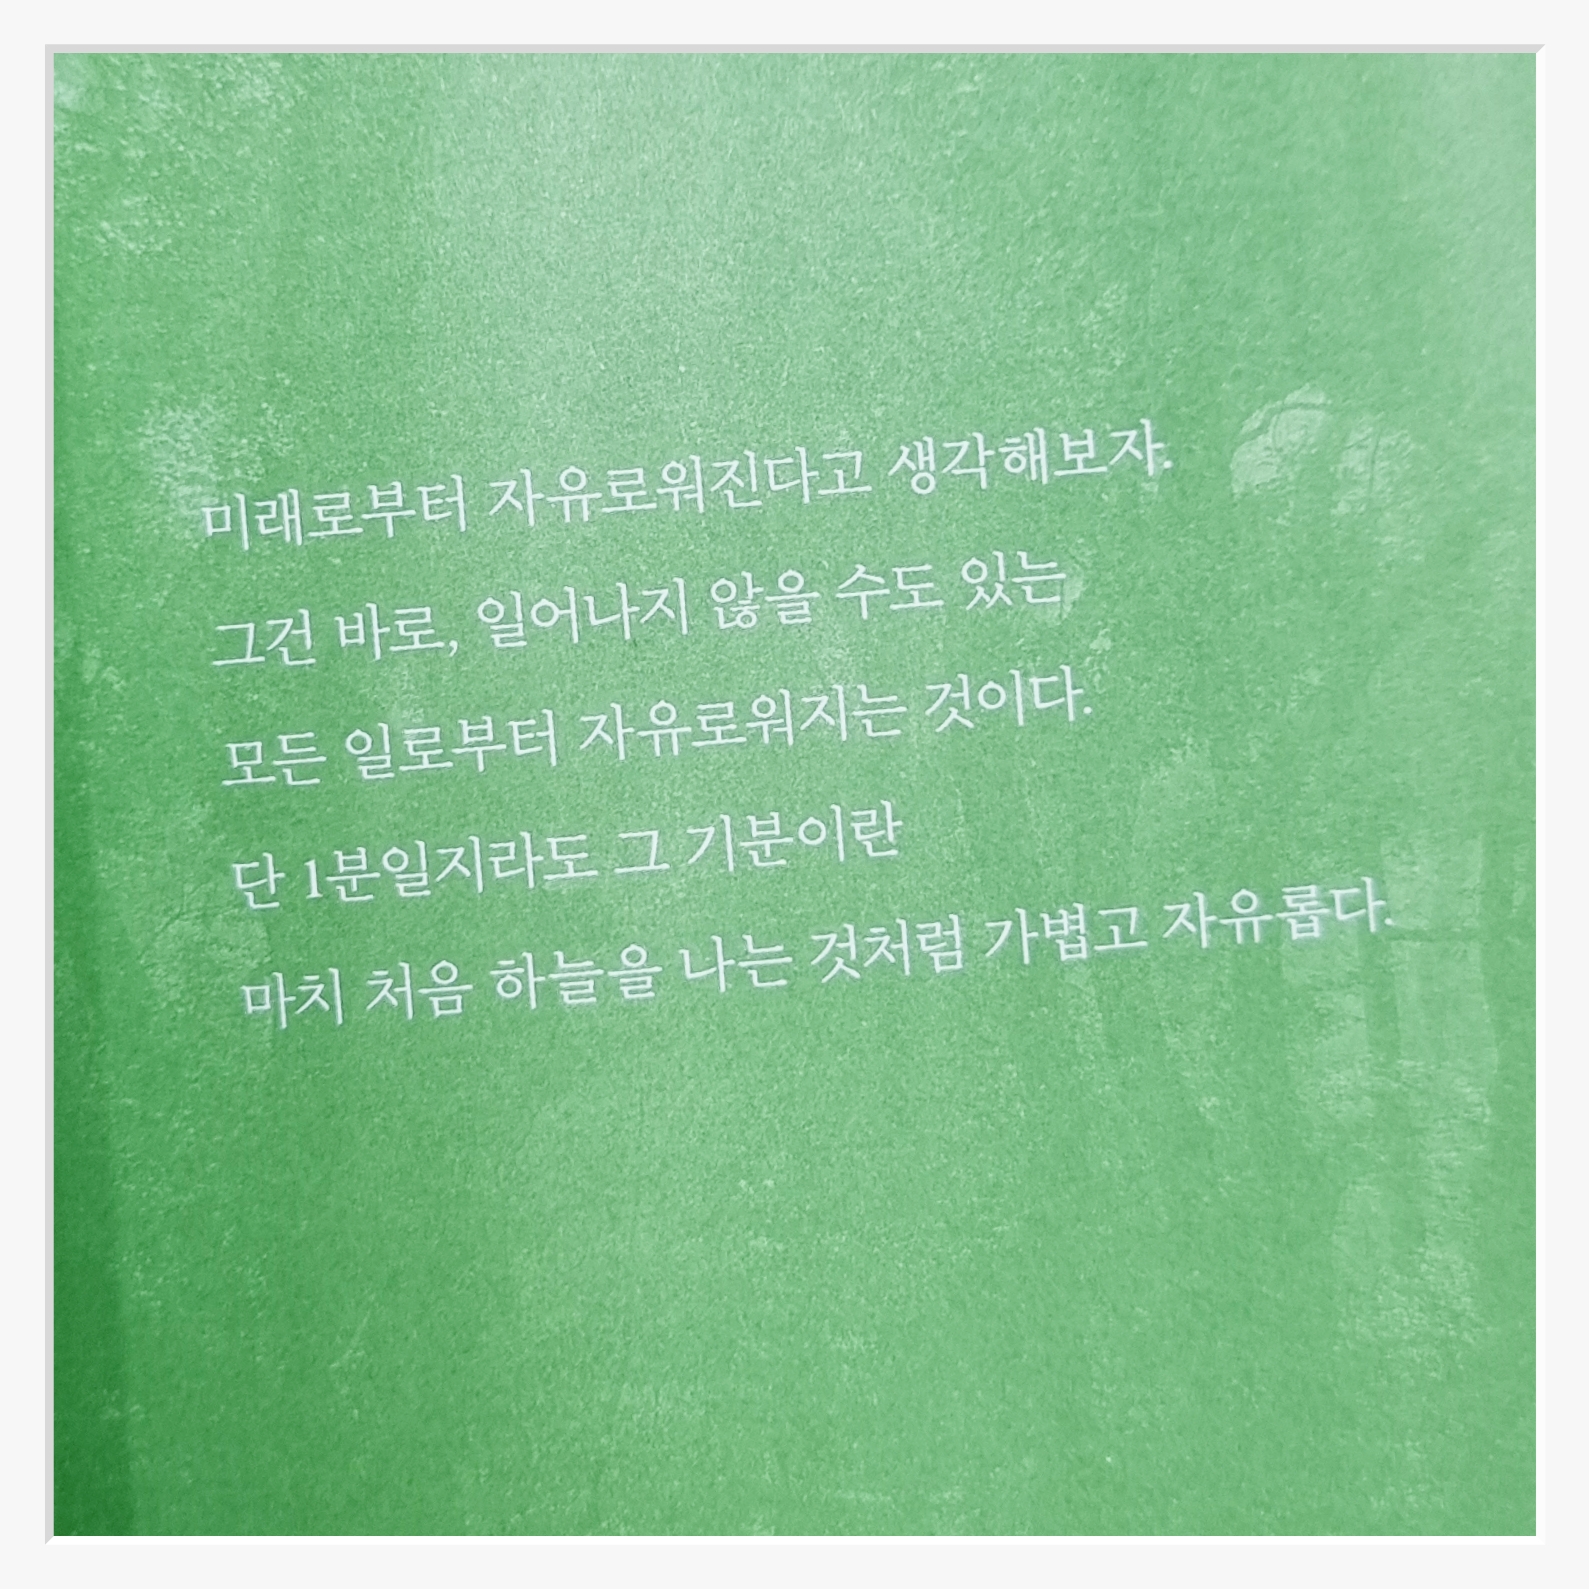 미래로부터 자유로워진다고 생각해보자.
그건 바로, 일어나지 않을 수도 있는
모든 일로부터 자유로워지는 것이다.
단 1분일지라도 그 기분이란
마치 처음 하늘을 나는 것처럼 가볍고 자유롭다.